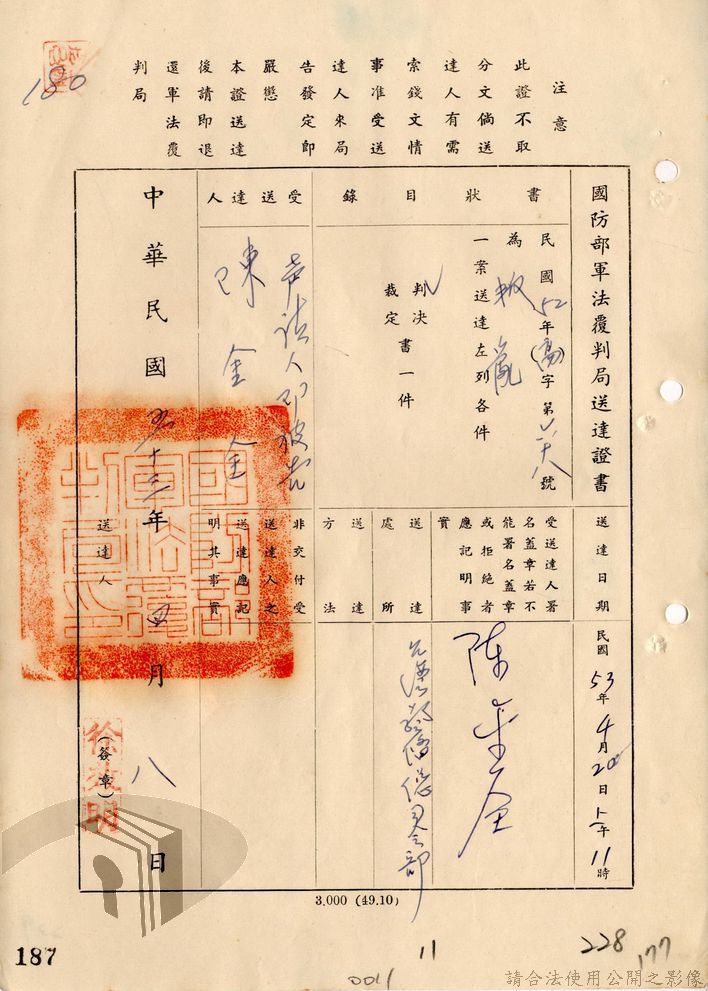 注意
此證不取
分文倘送
達人有需
索錢文情
事准受送
達人來局
告發定即
嚴懲
本證送達
後請即退
還軍法覆
判局
180
國防部軍法覆判局送達證書
書狀目錄
民國52年(高)字第號
為叛亂
一案送達左列各件
判決
裁定
書一件
受送達人
聲請人即被告
陳金全
中華民國五十三年四月八日
送達日期
民國53年4月20日上午11時
受送達人署
名蓋章若不
能署名蓋章
或拒絕者
應記明事
實
陳金全
送達處所
警備總司令部
送達方法
非交付受
送達人之
送達應記
明其事實
送達人
(簽章)
徐楚明
國防部軍法覆判局印
3,000 (49.10)
187
11
001/
228
177
請合法使用公開之影像